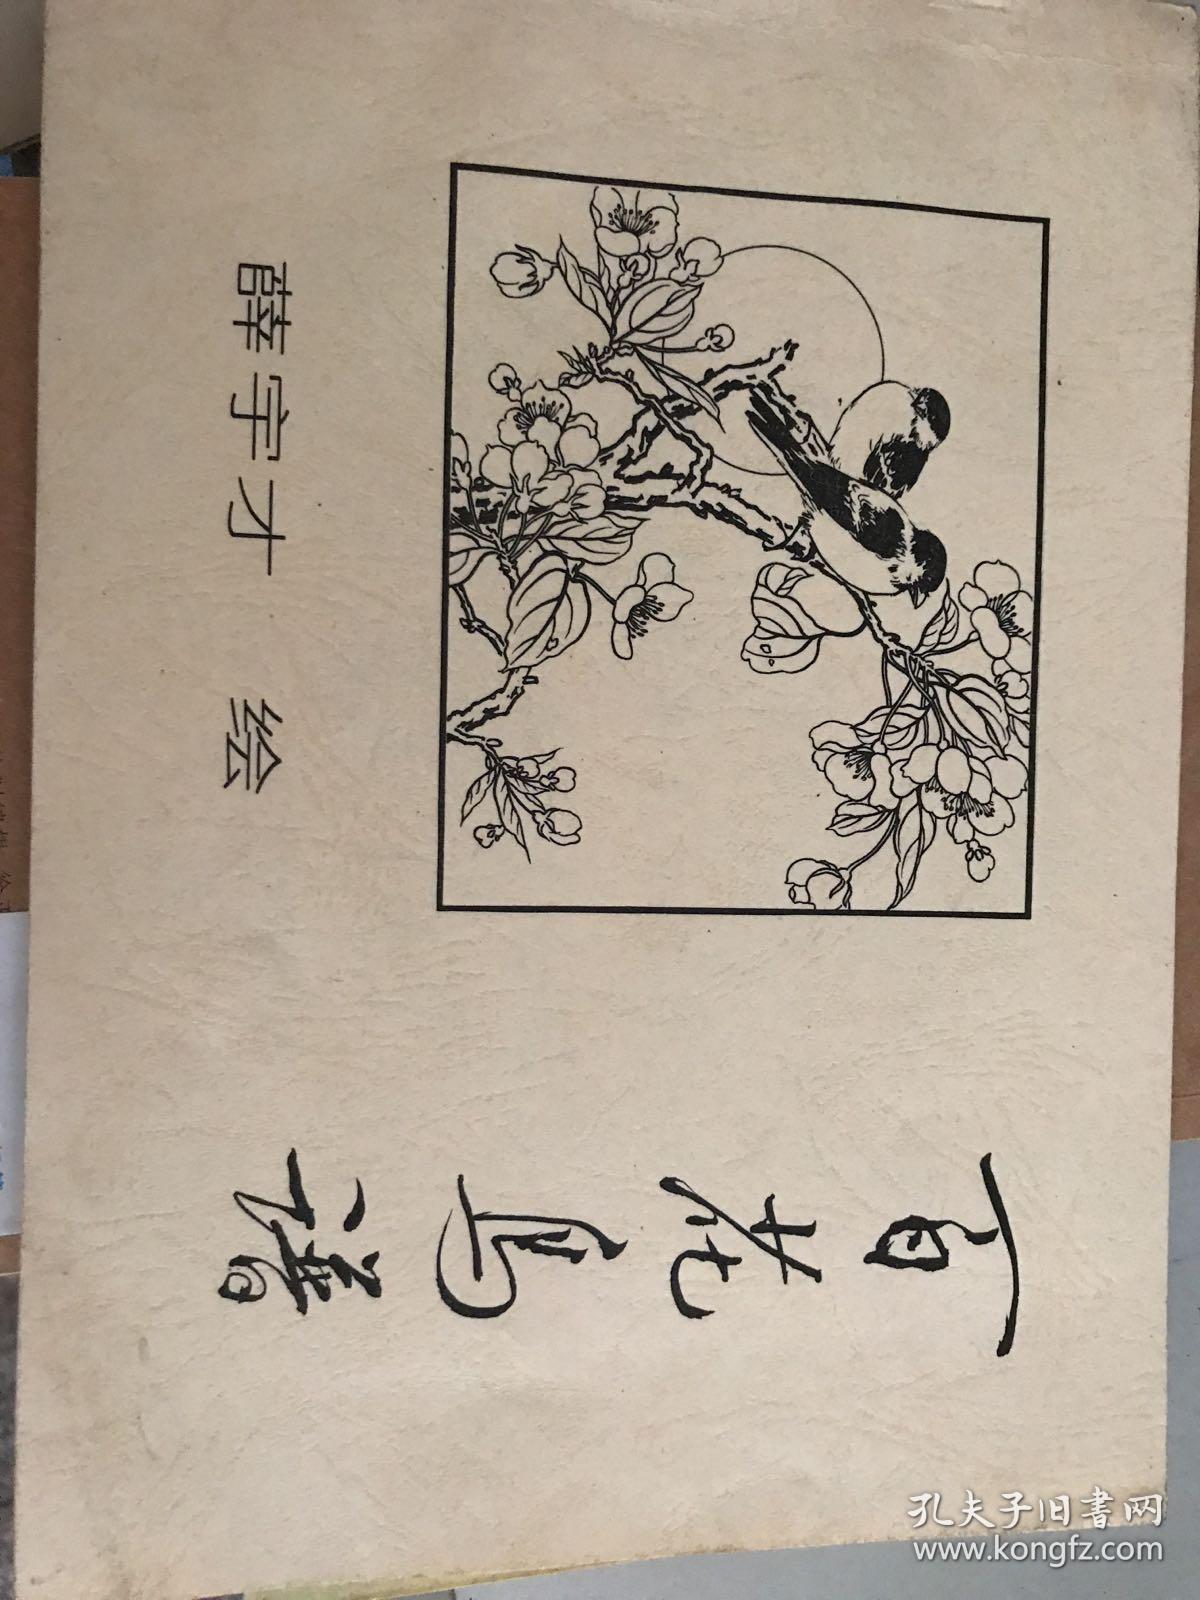 百花鸟谱
薛宇才 绘
孔夫子旧書网
www.kongfz.com